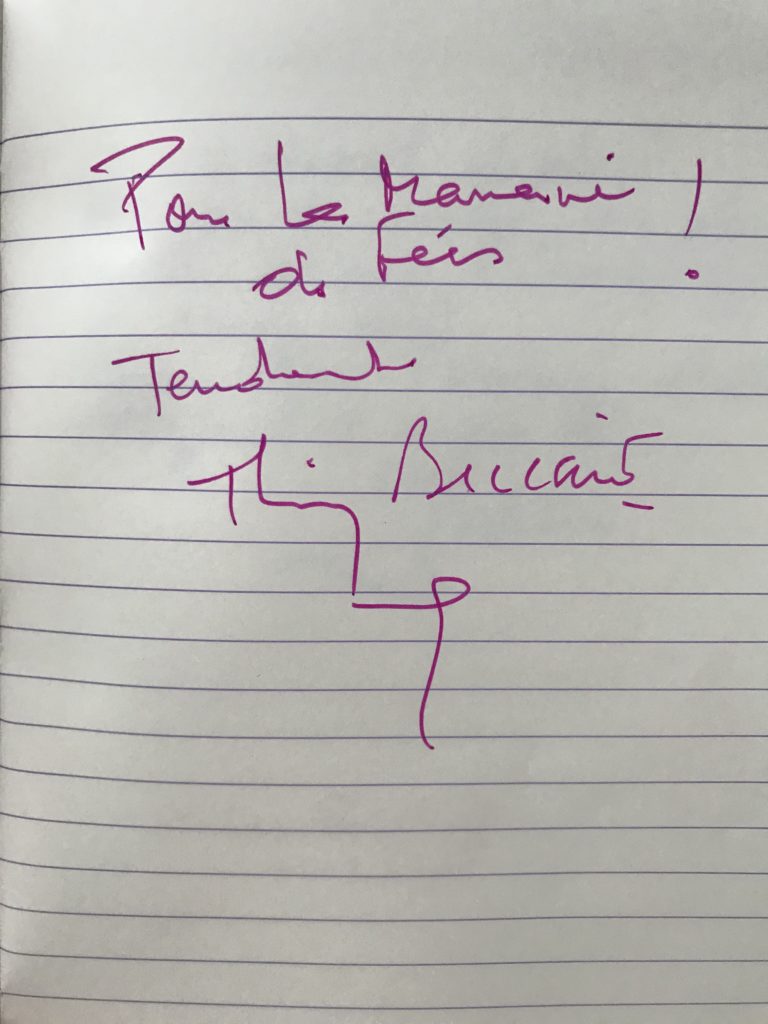 Pour la
de Fées
Tendrement
Thierry Beccaro